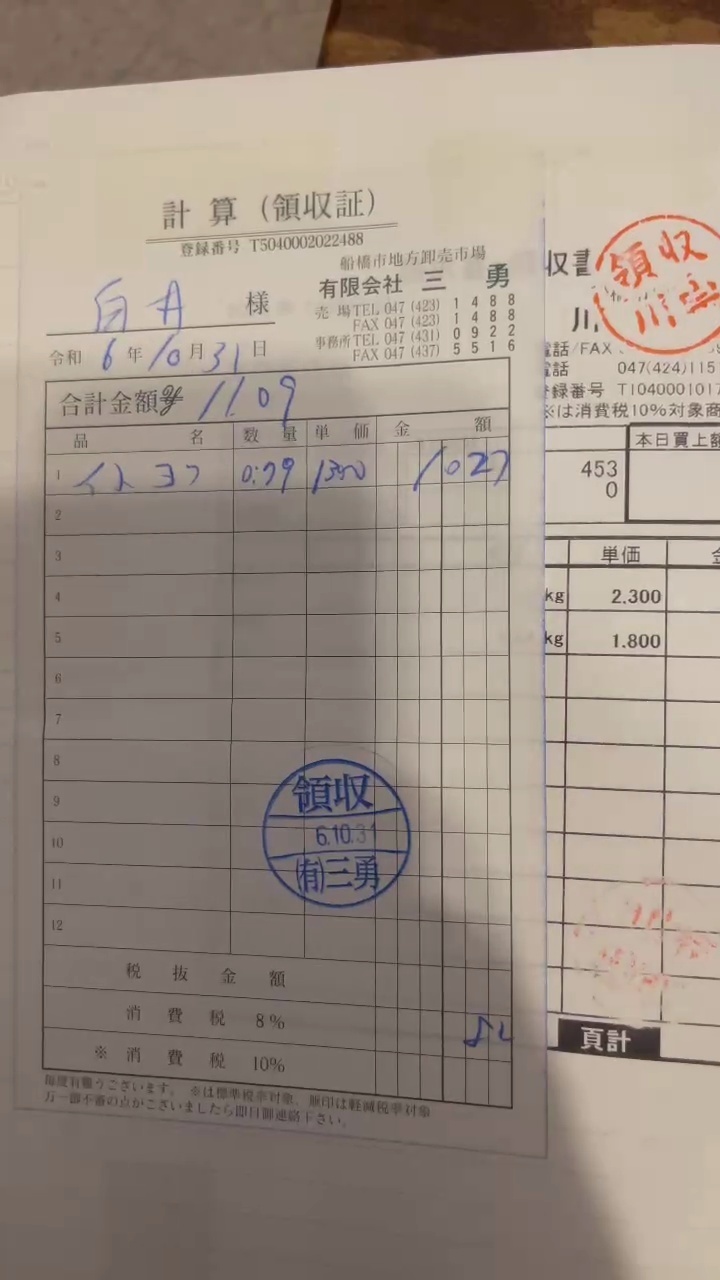 計算(領収証)
登録番号 T5040002022488
船橋市地方卸売市場
有限会社 三勇
白井 様
売場 TEL 047 (423) 1488
FAX 047 (423) 1488
事務所 TEL 047 (431) 0922
FAX 047 (437) 5516
令和 6年10月31日
合計金額 ¥ 1109
品名 数量 単価 金額
1 0.79 1300 1027
2
3
4
5
6
7
8
9
10
11
12
領収
6.10.31
(有)三勇
税抜金額
消費税 8% 82
※消費税 10%
毎度有難うございます。 ※は標準税率対象、無印は軽減税率対象
万一御不審の点がございましたら即日御連絡下さい。
収書
領収
川
電話/FAX
電話 047(424)115
登録番号 T1040001017
※は消費税10%対象商
本日買上額
453
0
単価 金
kg 2.300
kg 1.800
頁計